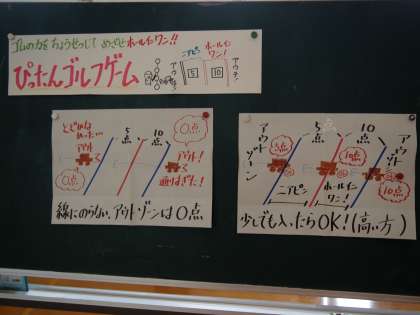 ゴムの力をちょうせつして めざせ ホールインワン!!
ぴったんゴルフゲーム
ニアピン
ホールインワン!
アウチ!
5
10
アウチ!
とどかなかった…
0点
5点
10点
0点
アウト!
通りすぎた!
線にのらない、アウトゾーンは0点
アウトゾーン
5点
10点
アウトゾーン
5点
10点
10点
ニアピン
ホールインワン!
少しでも入ったらOK!(高い方)